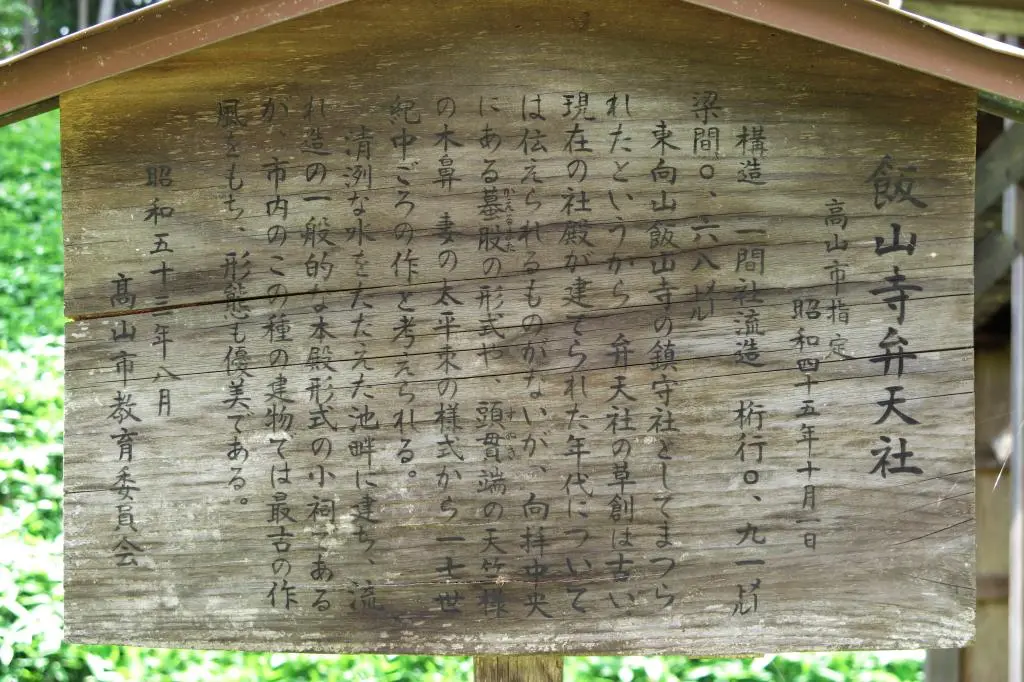 飯山寺弁天社
高山市指定
昭和四十五年十月一日
構造 一間社流造 桁行〇、九一㍍
梁間〇、六八㍍
東向山飯山寺の鎮守社としてまつら
れたというから 弁天社の草創は古い
現在の社殿が建てられた年代について
は伝えられるものがないが、向拝中央
にある蟇股の形式や、頭貫端の天竺様
かえるまた
の木鼻 妻の太平束の様式から 十七世
紀中ごろの作と考えられる。
清冽な水をたたえた池畔に建ち、流
れ造の一般的な本殿形式の小祠である
か、市内のこの種の建物では最古の作
風をもち、形態も優美である。
昭和五十三年八月
高山市教育委員会